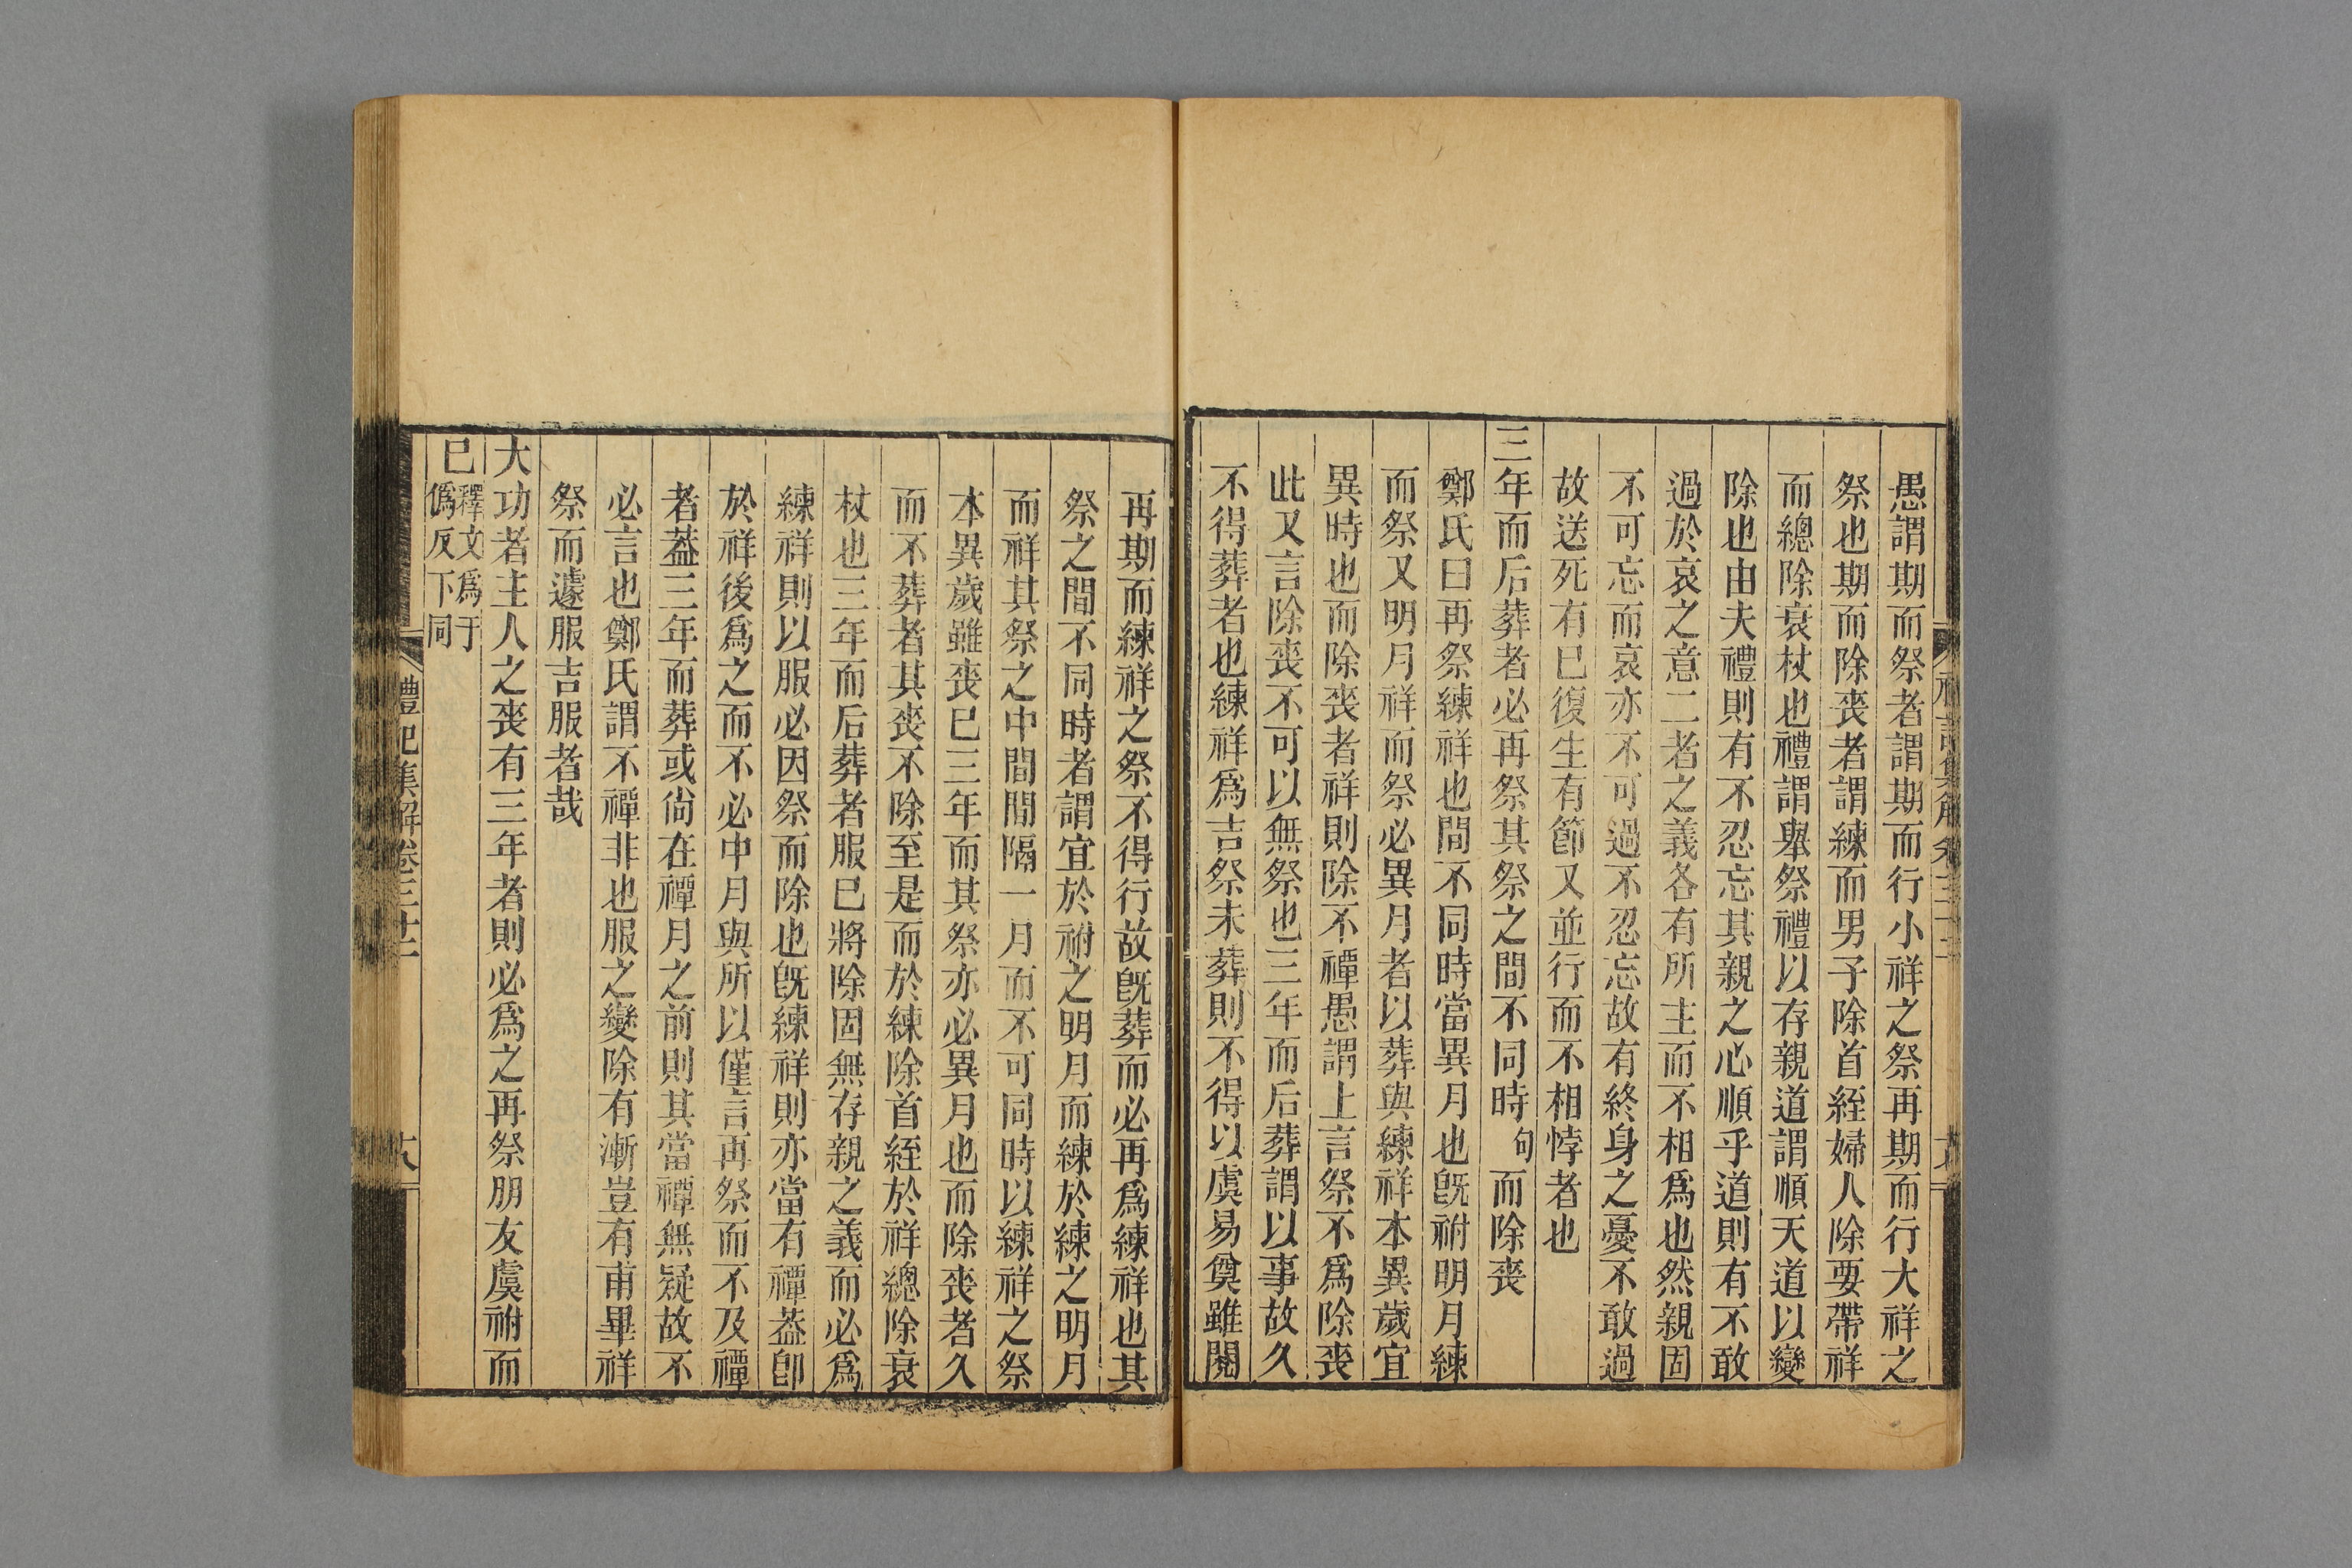 愚謂期而祭者謂期而行小祥之祭再期而行大祥之
祭也期而除喪者謂練而男子除首絰婦人除要帶祥
而總除衰杖也禮謂舉祭禮以存親道謂順天道以變
除也由夫禮則有不忍忘其親之心順乎道則有不敢
過於哀之意二者之義各有所主而不相爲也然親固
不可忘而哀亦不可過不忍忘故有終身之憂不敢過
故送死有已復生有節又並行而不相悖者也
三年而后葬者必再祭其祭之間不同時句而除喪
鄭氏曰再祭練祥也間不同時當異月也旣祔明月練
而祭又明月祥而祭必異月者以葬與練祥本異歲宜
異時也而除喪者祥則除不禫愚謂上言祭不爲除喪
此又言除喪不可以無祭也三年而后葬謂以事故久
不得葬者也練祥爲吉祭未葬則不得以虞易奠雖閱
再期而練祥之祭不得行故旣葬而必再爲練祥也其
祭之間不同時者謂宜於祔之明月而練於練之明月
而祥其祭之中間間隔一月而不可同時以練祥之祭
本異歲雖喪已三年而其祭亦必異月也而除喪者久
而不葬者其喪不除至是而於練除首絰於祥總除衰
杖也三年而后葬者服已將除固無存親之義而必爲
練祥則以服必因祭而除也旣練祥則亦當有禫葢卽
於祥後爲之而不必中月與所以僅言再祭而不及禫
者葢三年而葬或尙在禫月之前則其當禫無疑故不
必言也鄭氏謂不禫非也服之變除有漸豈有甫畢祥
祭而遽服吉服者哉
大功者主人之喪有三年者則必爲之再祭朋友虞祔而
已釋文爲于
僞反下同
禮記集解卷三十二
十八